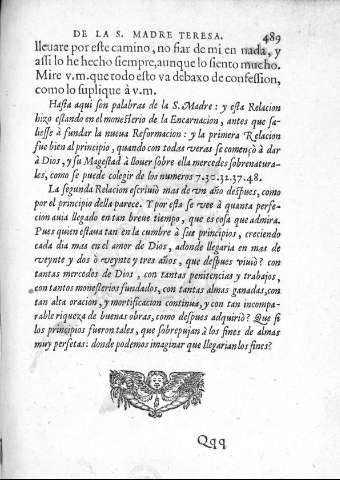 DE LA S. MADRE TERESA. 489
lleuare por este camino, no fiar de mi en nada, y
assi lo he hecho siempre, aunque lo siento mucho.
Mire v.m. que todo esto va debaxo de confession,
como lo suplique à v.m.
Hasta aqui son palabras de la S. Madre: y esta Relacion
hizo estando en el monesterio de la Encarnacion, antes que sa-
liesse à fundar la nueua Reformacion: y la primera Relacion
fue bien al principio, quando con todas veras se començò à dar
à Dios, y su Magestad à llouer sobre ella mercedes sobrenatura-
les, como se puede colegir de los numeros 7.30.32.37.48.
La segunda Relacion escriuiò mas de vn año despues, como
por el principio della parece. Y por esta se vee à quanta perfe-
cion auia llegado en tan breue tiempo, que es cosa que admira.
Pues quien estaua tan en la cumbre à sus principios, creciendo
cada dia mas en el amor de Dios, adonde llegaria en mas de
veynte y dos ò veynte y tres años, que despues viuiò? con
tantas mercedes de Dios, con tantas penitencias y trabajos,
con tantos monesterios fundados, con tantas almas ganadas, con
tan alta oracion, y mortificacion continua, y con tan incompa-
rable riqueza de buenas obras, como despues adquiriò? Que si
los principios fueron tales, que sobrepujan à los fines de almas
muy perfetas: donde podemos imaginar que llegarian los fines?
Qqq